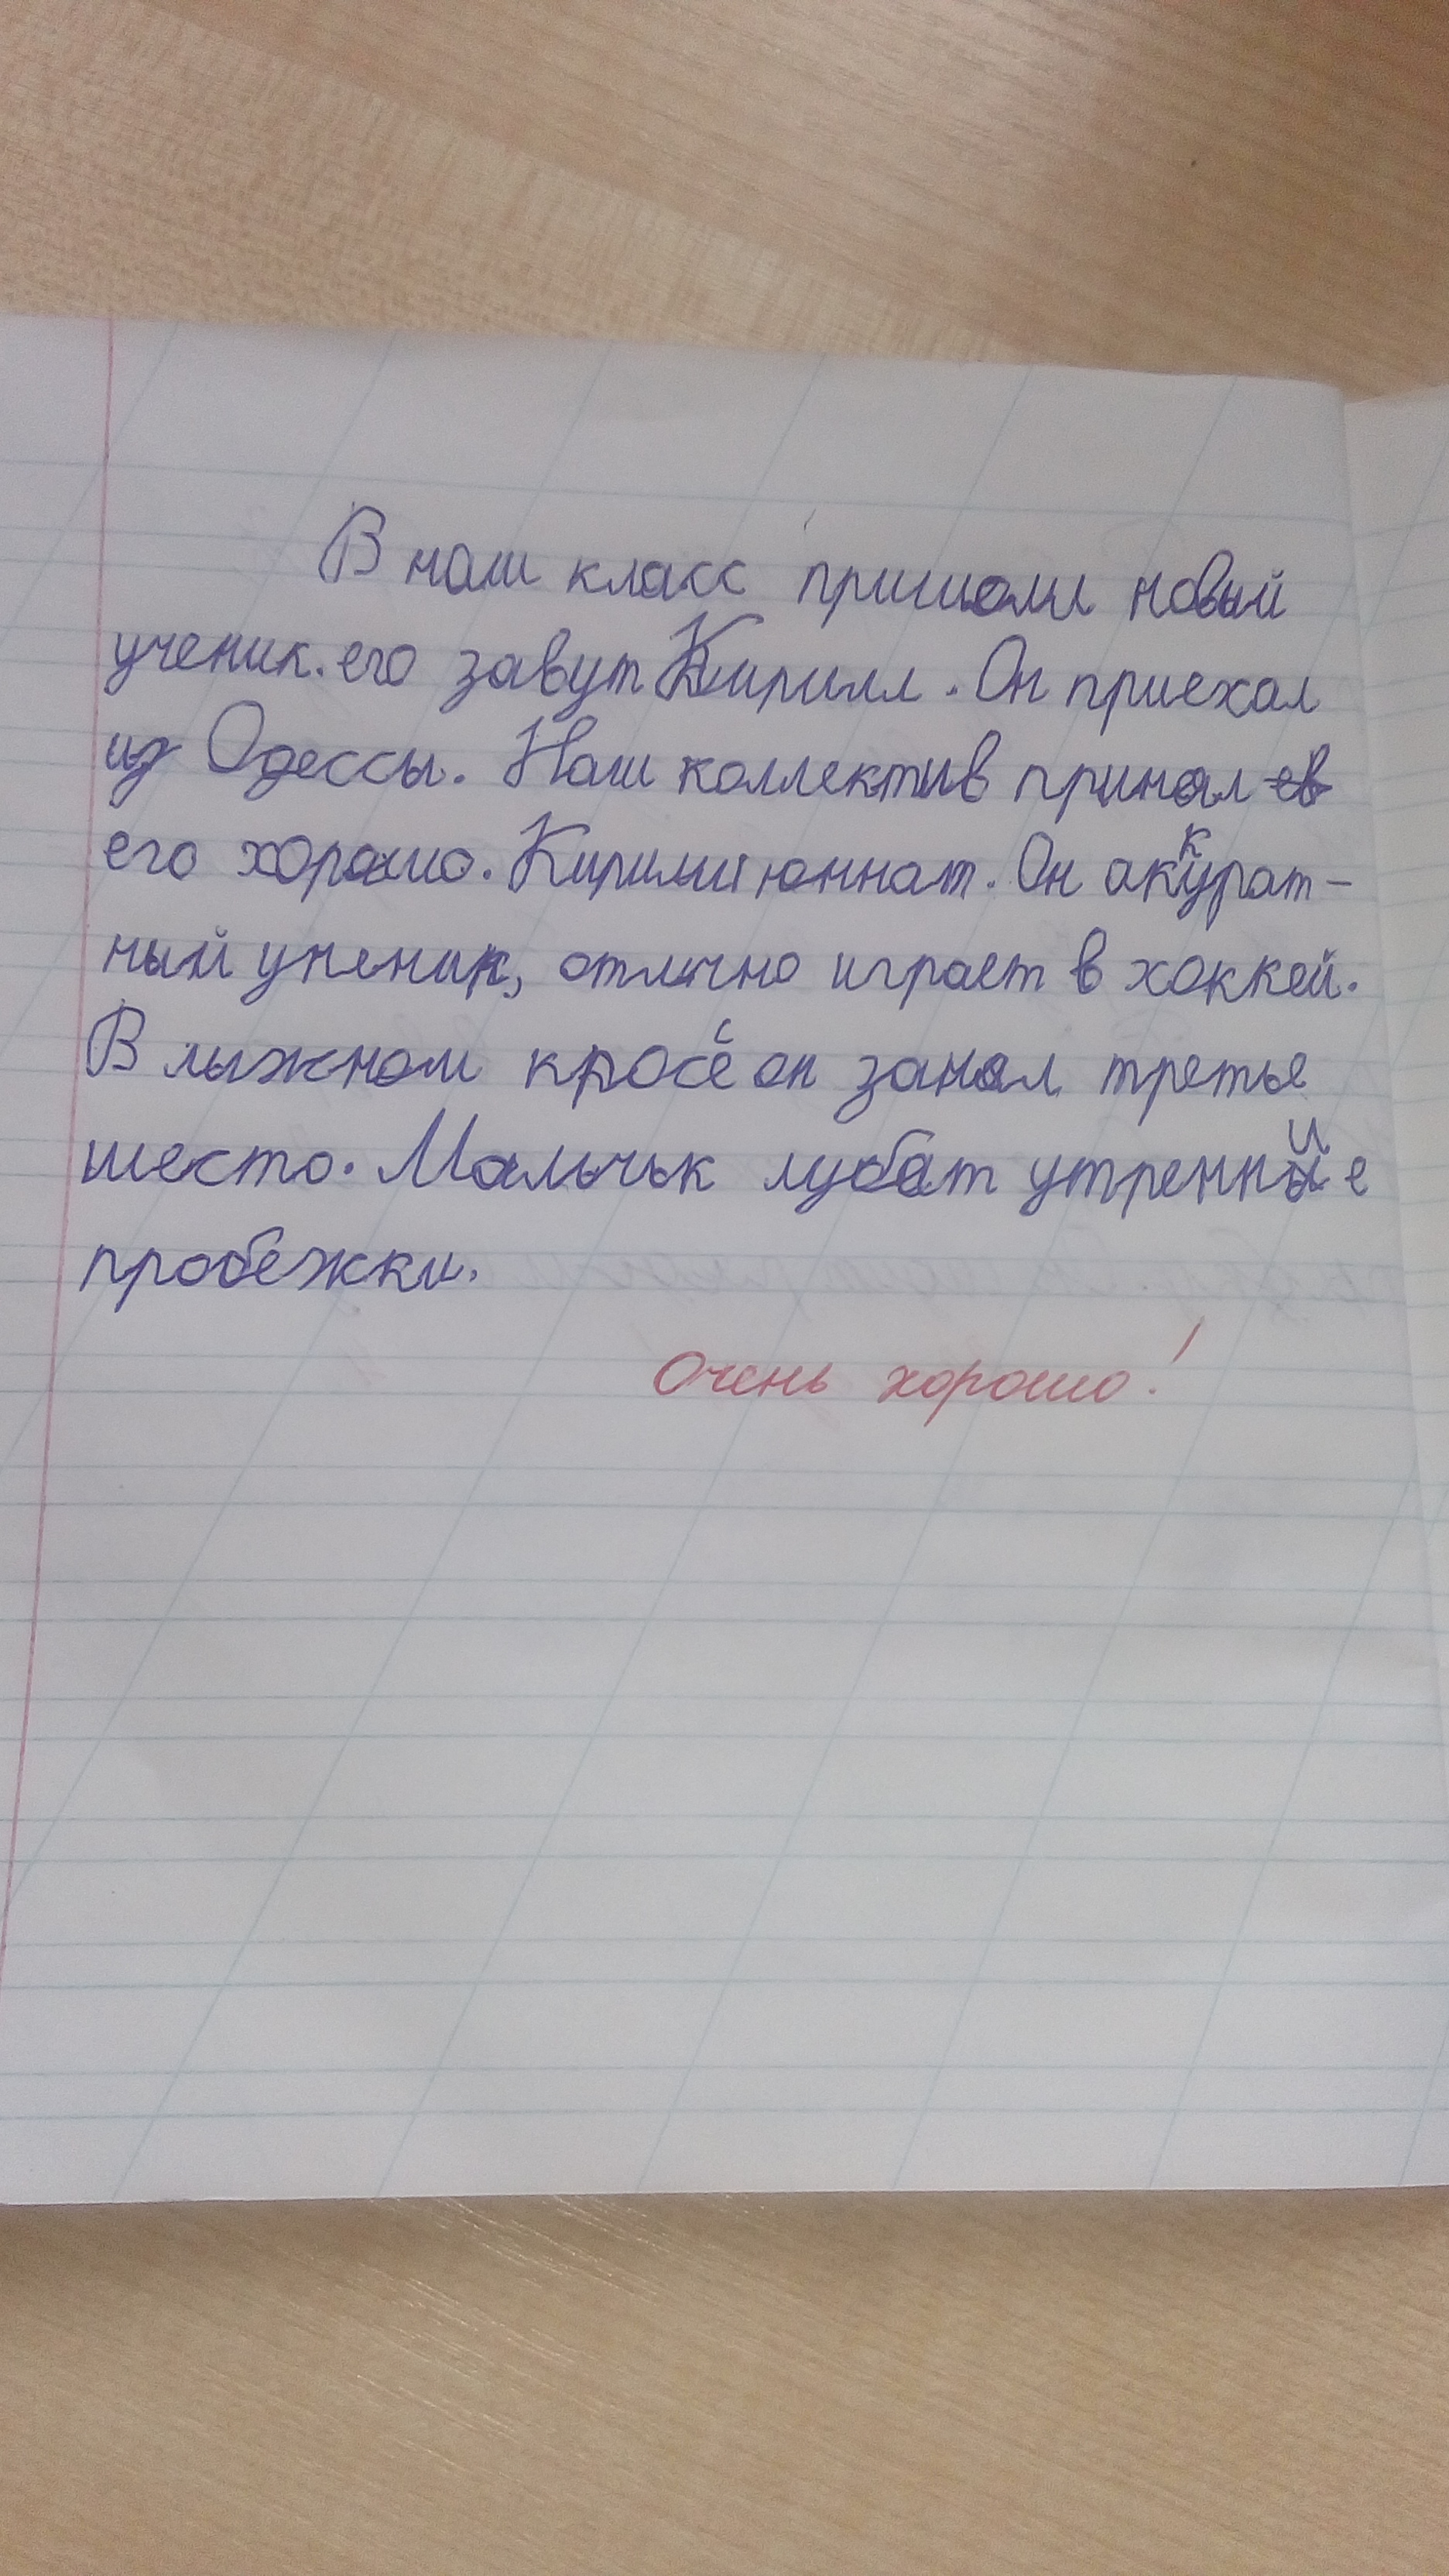 В наш класс пришоли новый
ученик. его завут Кирилл. Он приехал
из Одессы. Наш коллектив принял ев
его хорошо. Кирилл юннат. Он аккурат-
ный ученик, отлично играет в хоккей.
В лыжном кроссе он занял третье
место. Мальчьк лубат утренние
пробежки.
Очень хорошо!